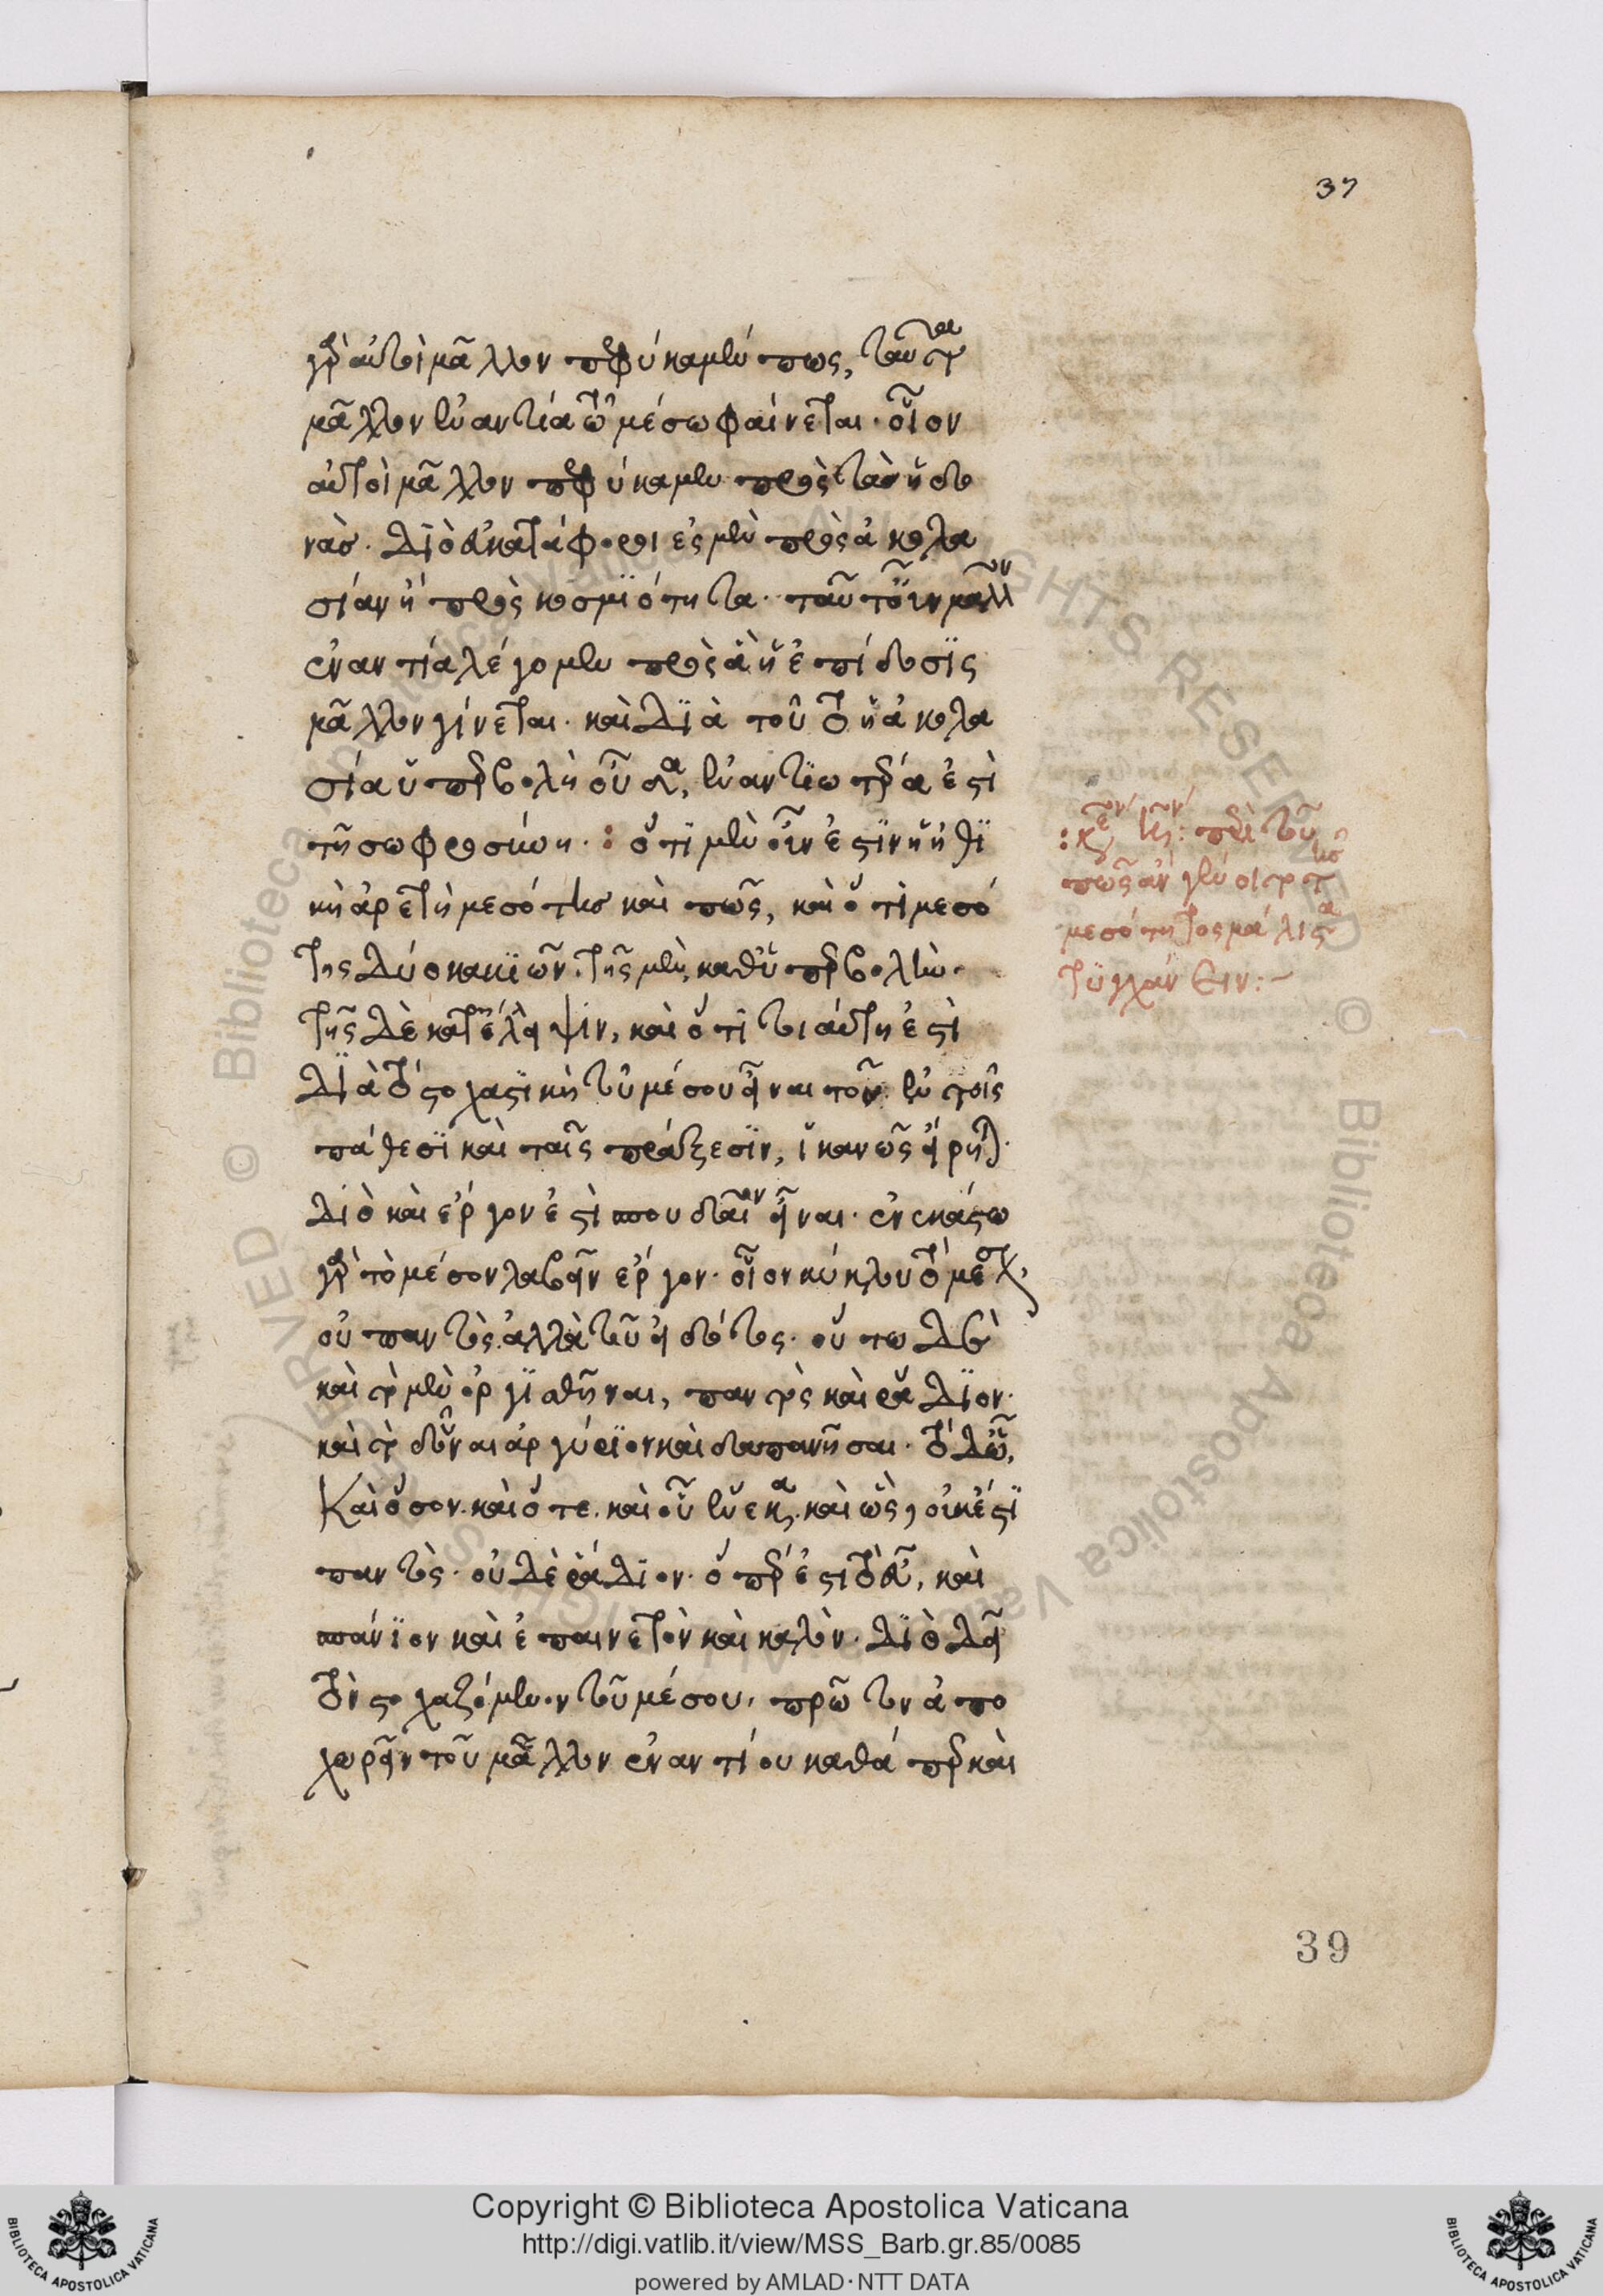 37
γὰρ αὐτοὶ μᾶλλον πεφύκαμέν πως, ταῦτα
μᾶλλον ἐναντία τῷ μέσω φαίνεται· οἷον
αὐτοὶ μᾶλλον πεφύκαμεν πρὸς τὰς ἡδο
νάς· διὸ εὐκατάφοροι ἐσμὲν πρὸς ἀκολα
σίαν ἢ πρὸς κοσμϊότητα· ταῦτ' οὖν μᾶλλον
ἐναντία λέγομεν πρὸς ἃ ἡ ἐπίδοσϊς
μᾶλλον γίνεται· καὶ δϊὰ τοῦτο ἡ ἀκολα
σία ὑπερβολὴ οὖσα, ἐναντϊωτέρα ἐστὶ
τῇ σωφροσύνη· : ὅτι μὲν οὖν ἐστϊν ἡ ἠθϊ
κὴ ἀρετὴ μεσότης καὶ πῶς, καὶ ὅτι μεσό
της δύο κακϊῶν· τῆς μὲν, καθ' ὑπερβολὴν·
τῆς δὲ κατ' ἔλλειψιν, καὶ ὅτι τοιαύτη ἐστὶ
δϊὰ τὸ στοχαστϊκὴ τοῦ μέσου εἶναι τοῦ ἐν τοῖς
πάθεσϊ καὶ ταῖς πράξεσϊν, ἱκανῶς εἴρηται·
διὸ καὶ ἔργον ἐστὶ σπουδαῖον εἶναι· ἐν ἑκάστω
γὰρ τὸ μέσον λαβεῖν ἔργον· οἷον κύκλου τὸ μέσον
οὐ παντὸς ἀλλὰ τοῦ εἰδότος· οὕτω δὲ
καὶ τὸ μὲν ὀργϊσθῆναι, παντὸς καὶ ῥάδϊον·
καὶ τὸ δοῦναι ἀργύρϊον καὶ δαπανῆσαι· τὸ δ' ᾧ,
καὶ ὅσον· καὶ ὅτε· καὶ οὗ ἕνεκα· καὶ ὥς, οὐκέτϊ
παντὸς· οὐδὲ ῥάδϊον· ὅπερ ἐστὶ τὸ εὖ, καὶ
σπάνϊον καὶ ἐπαινετὸν καὶ καλόν· δϊὸ δεῖ
τὸν στοχαζόμενον τοῦ μέσου, πρῶτον ἀπο
χωρεῖν τοῦ μᾶλλον ἐναντίου καθάπερ καὶ
περὶ τοῦ
πῶς ἂν γένοιτό τις
μεσότητος μάλιστα
τϋγχάνειν :~
39
Copyright © Biblioteca Apostolica Vaticana
http://digi.vatlib.it/view/MSS_Barb.gr.85/0085
powered by AMLAD·NTT DATA